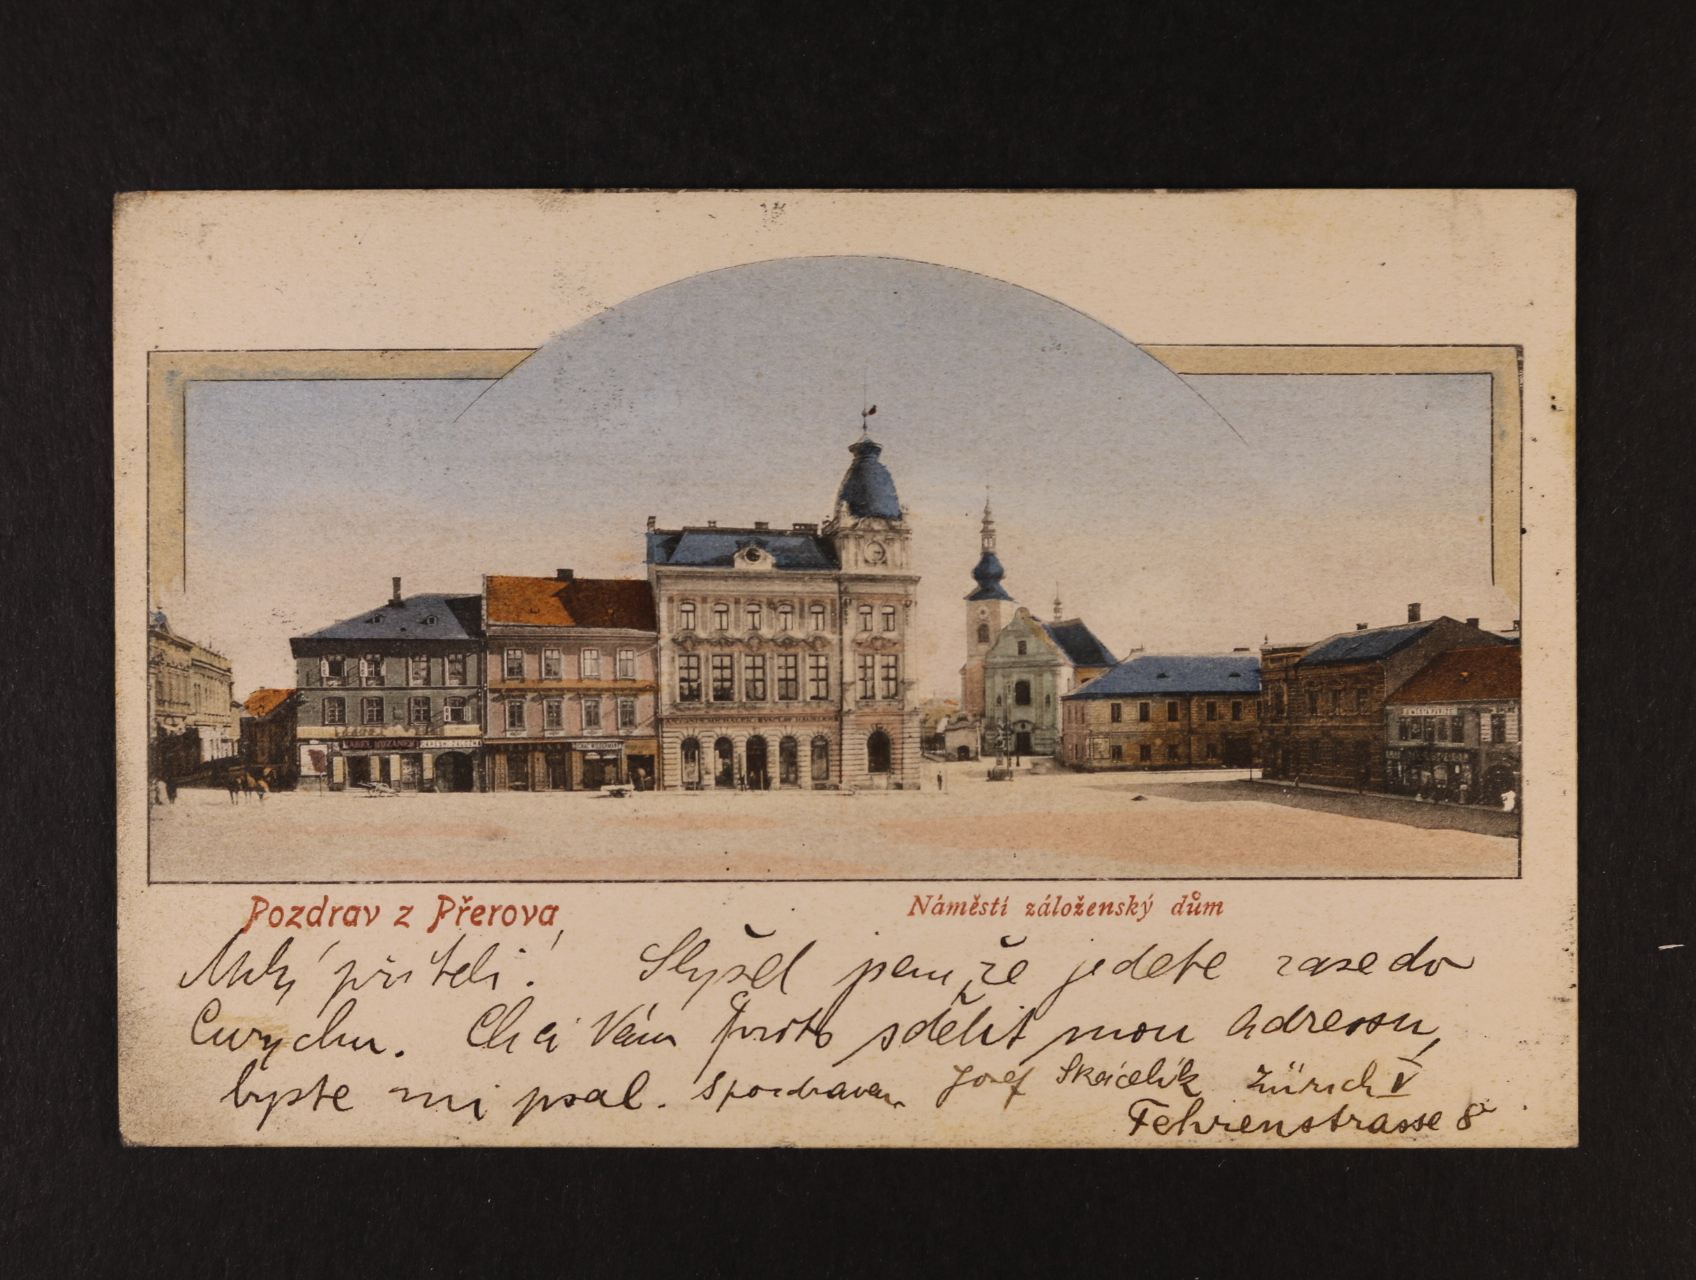 KAREL RUZANEK
Pozdrav z Přerova
Náměstí záloženský dům
Milý příteli! Slyšel jsem, že jedete zase do
Curychu. Chci Vám proto sdělit mou adressu,
byste mi psal. S pozdravem Josef Skácelík Zürich V
Fehrenstrasse 8